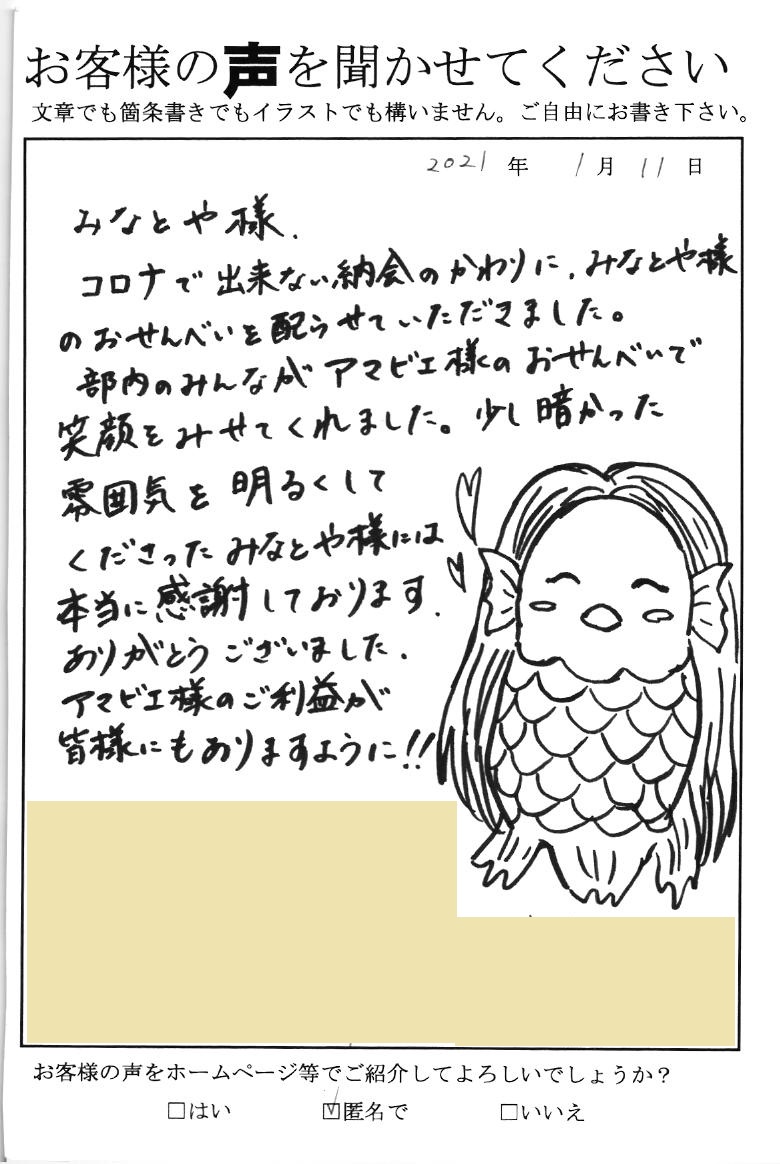 お客様の声を聞かせてください
文章でも箇条書きでもイラストでも構いません。ご自由にお書き下さい。
2021 年 1 月 11 日
みなとや様.
コロナで出来ない納会のかわりに、みなとや様
のおせんべいを配らせていただきました。
部内のみんなが アマビエ様のおせんべいで
笑顔をみせてくれました。少し暗かった
雰囲気を明るくして
くださったみなとや様には
本当に感謝しております.
ありがとうございました.
アマビエ様のご利益が
皆様にもありますように!!
お客様の声をホームページ等でご紹介してよろしいでしょうか？
□はい ☑匿名で □いいえ